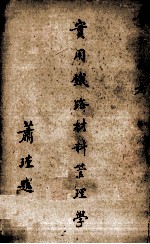 實用鐵路材料管理學
蕭瑾題